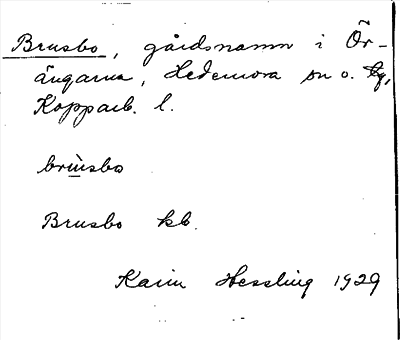 Brusbo, gårdsnamn i Ör-
ängarna, Hedemora sn o.
Kopparb. l.
Brusbo kb.
Karin Hessling 1929